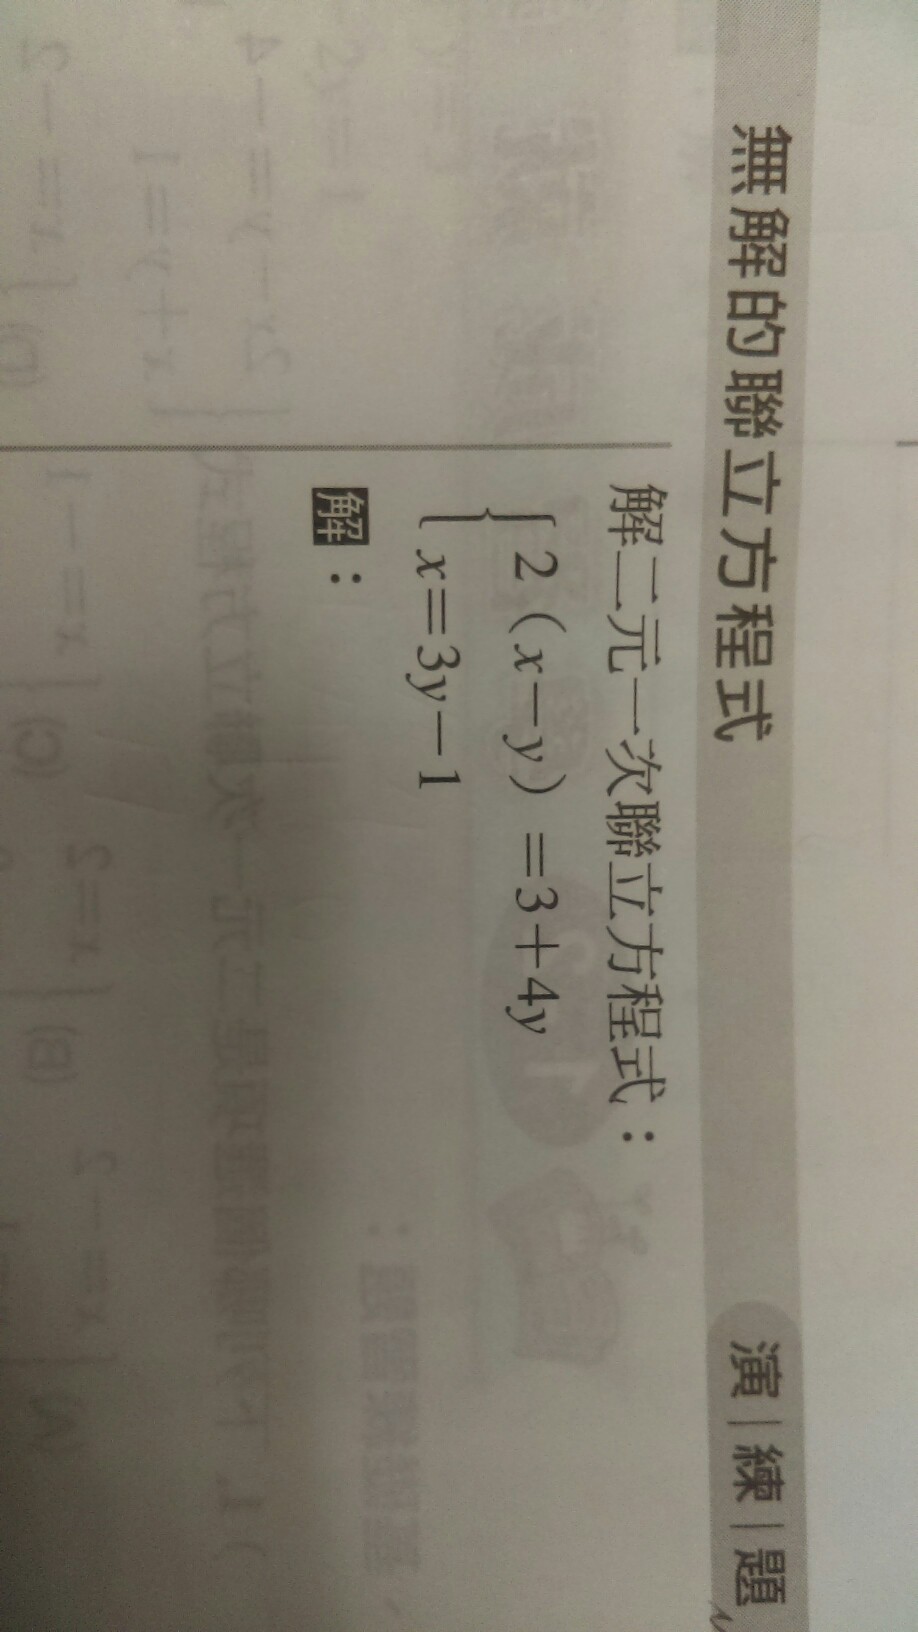 無解的聯立方程式
演 | 練 | 題
解二元一次聯立方程式：
2（x－y）＝3＋4y
x＝3y－1
解：